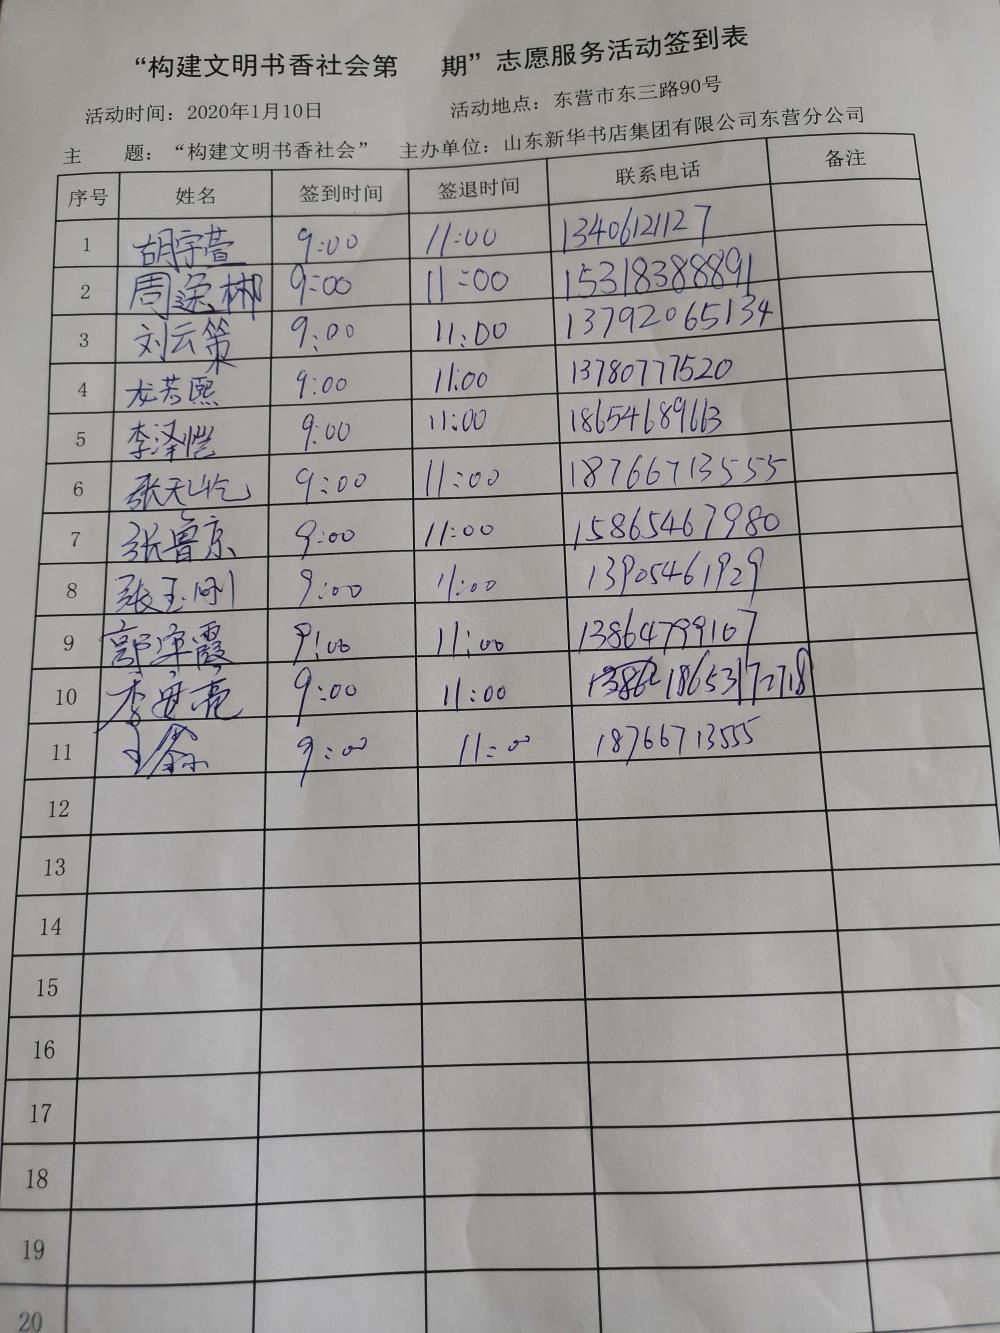 “构建文明书香社会第 期”志愿服务活动签到表
活动时间：2020年1月10日 活动地点：东营市东三路90号
主 题：“构建文明书香社会” 主办单位：山东新华书店集团有限公司东营分公司
序号 姓名 签到时间 签退时间 联系电话 备注
1 胡宇萱 9:00 11:00 13406121127
2 周 彬 9:00 11:00 15318388891
3 刘云策 9:00 11:00 13792065134
4 龙芳熙 9:00 11:00 13780777520
5 李泽恺 9:00 11:00 18654689663
6 张天屹 9:00 11:00 18766713555
7 张鲁京 9:00 11:00 15865467980
8 张玉刚 9:00 11:00 13905461929
9 郭守霞 9:00 11:00 13864799167
10 李 亮 9:00 11:00 18653172718
11 王 9:00 11:00 18766713555
12
13
14
15
16
17
18
19
20